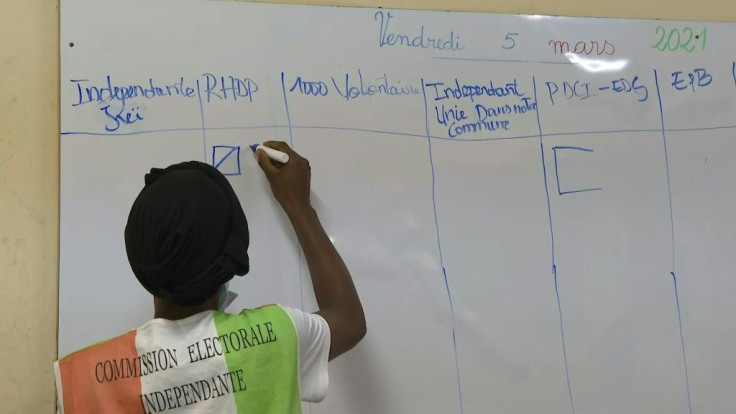 Vendredi 5 mars 2021
Independante RHDP 1000 Volontaire Independant PDCI-EDS
Unie Dans notre
Commune
COMMISSION ELECTORALE
INDEPENDANTE